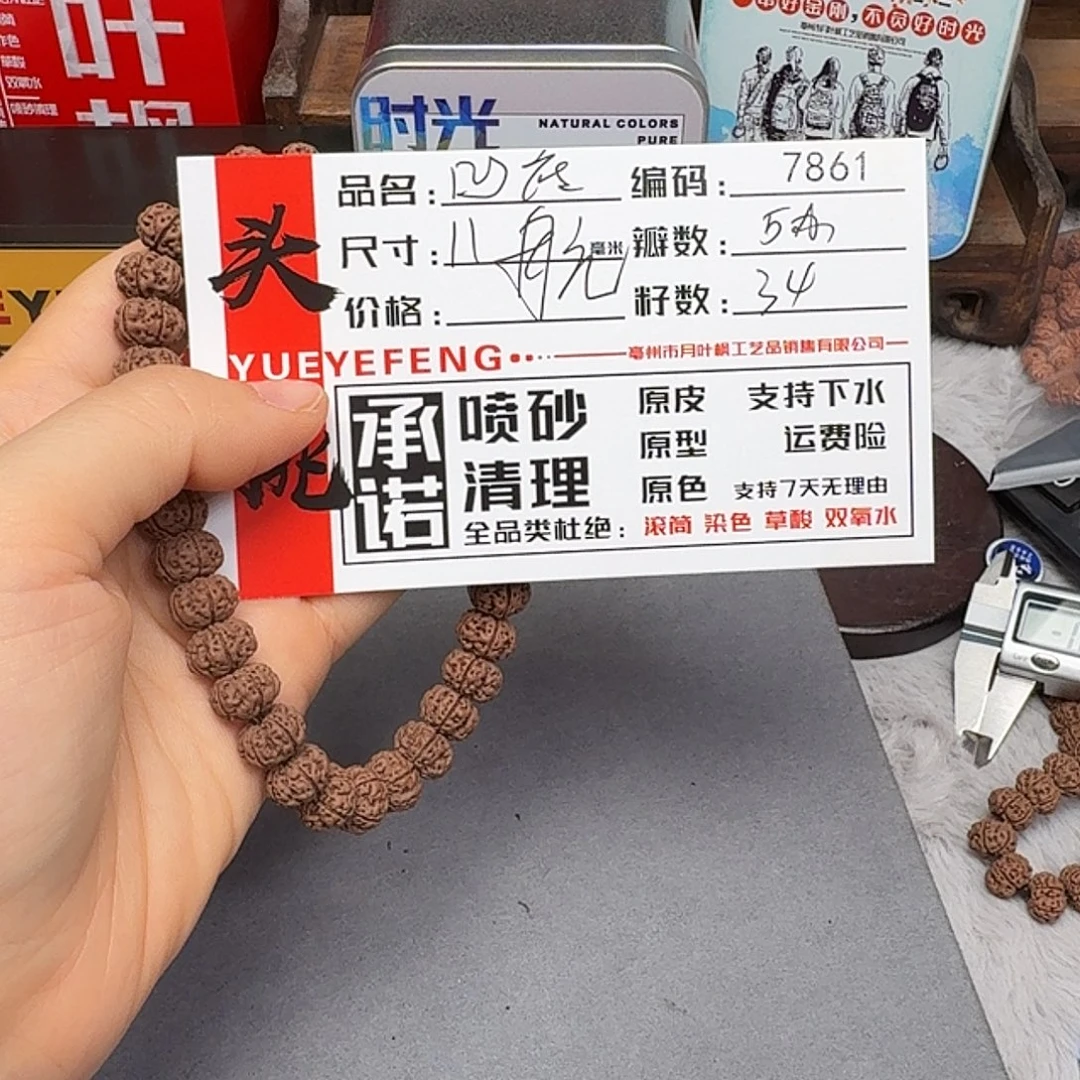 叶
双氧水
喷砂清理
时光
NATURAL COLORS
PURE
串好金刚，不负好时光
头
品名： 编码：7861
尺寸：11 毫米 瓣数：5
价格： 籽数：34
YUEYEFENG
亳州市月叶枫工艺品销售有限公司
承诺
喷砂
清理
原皮 支持下水
原型 运费险
原色 支持7天无理由
全品类杜绝：滚筒 染色 草酸 双氧水